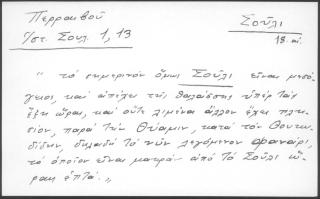 Περραιβοῦ
Ἱστ. Σουλ. 1, 13
Σούλι
18. αἰ.
" τό σημερινόν ὅμως Σούλι εἶναι μεσό-
γειον, καί ἀπέχει τῆς θαλάσσης ὑπέρ τάς
ἕξη ὥρας, καί οὔτε λιμένα ἄλλον ἔχει πλη-
σίον, παρά τόν Θύαμιν, κατά τόν Θουκυ-
δίδην, δηλαδή τό νῦν λεγόμενον Φανάρι,
τό ὁποῖον εἶναι μακράν ἀπό τό Σούλι ὥ-
ρας ἑπτά. "